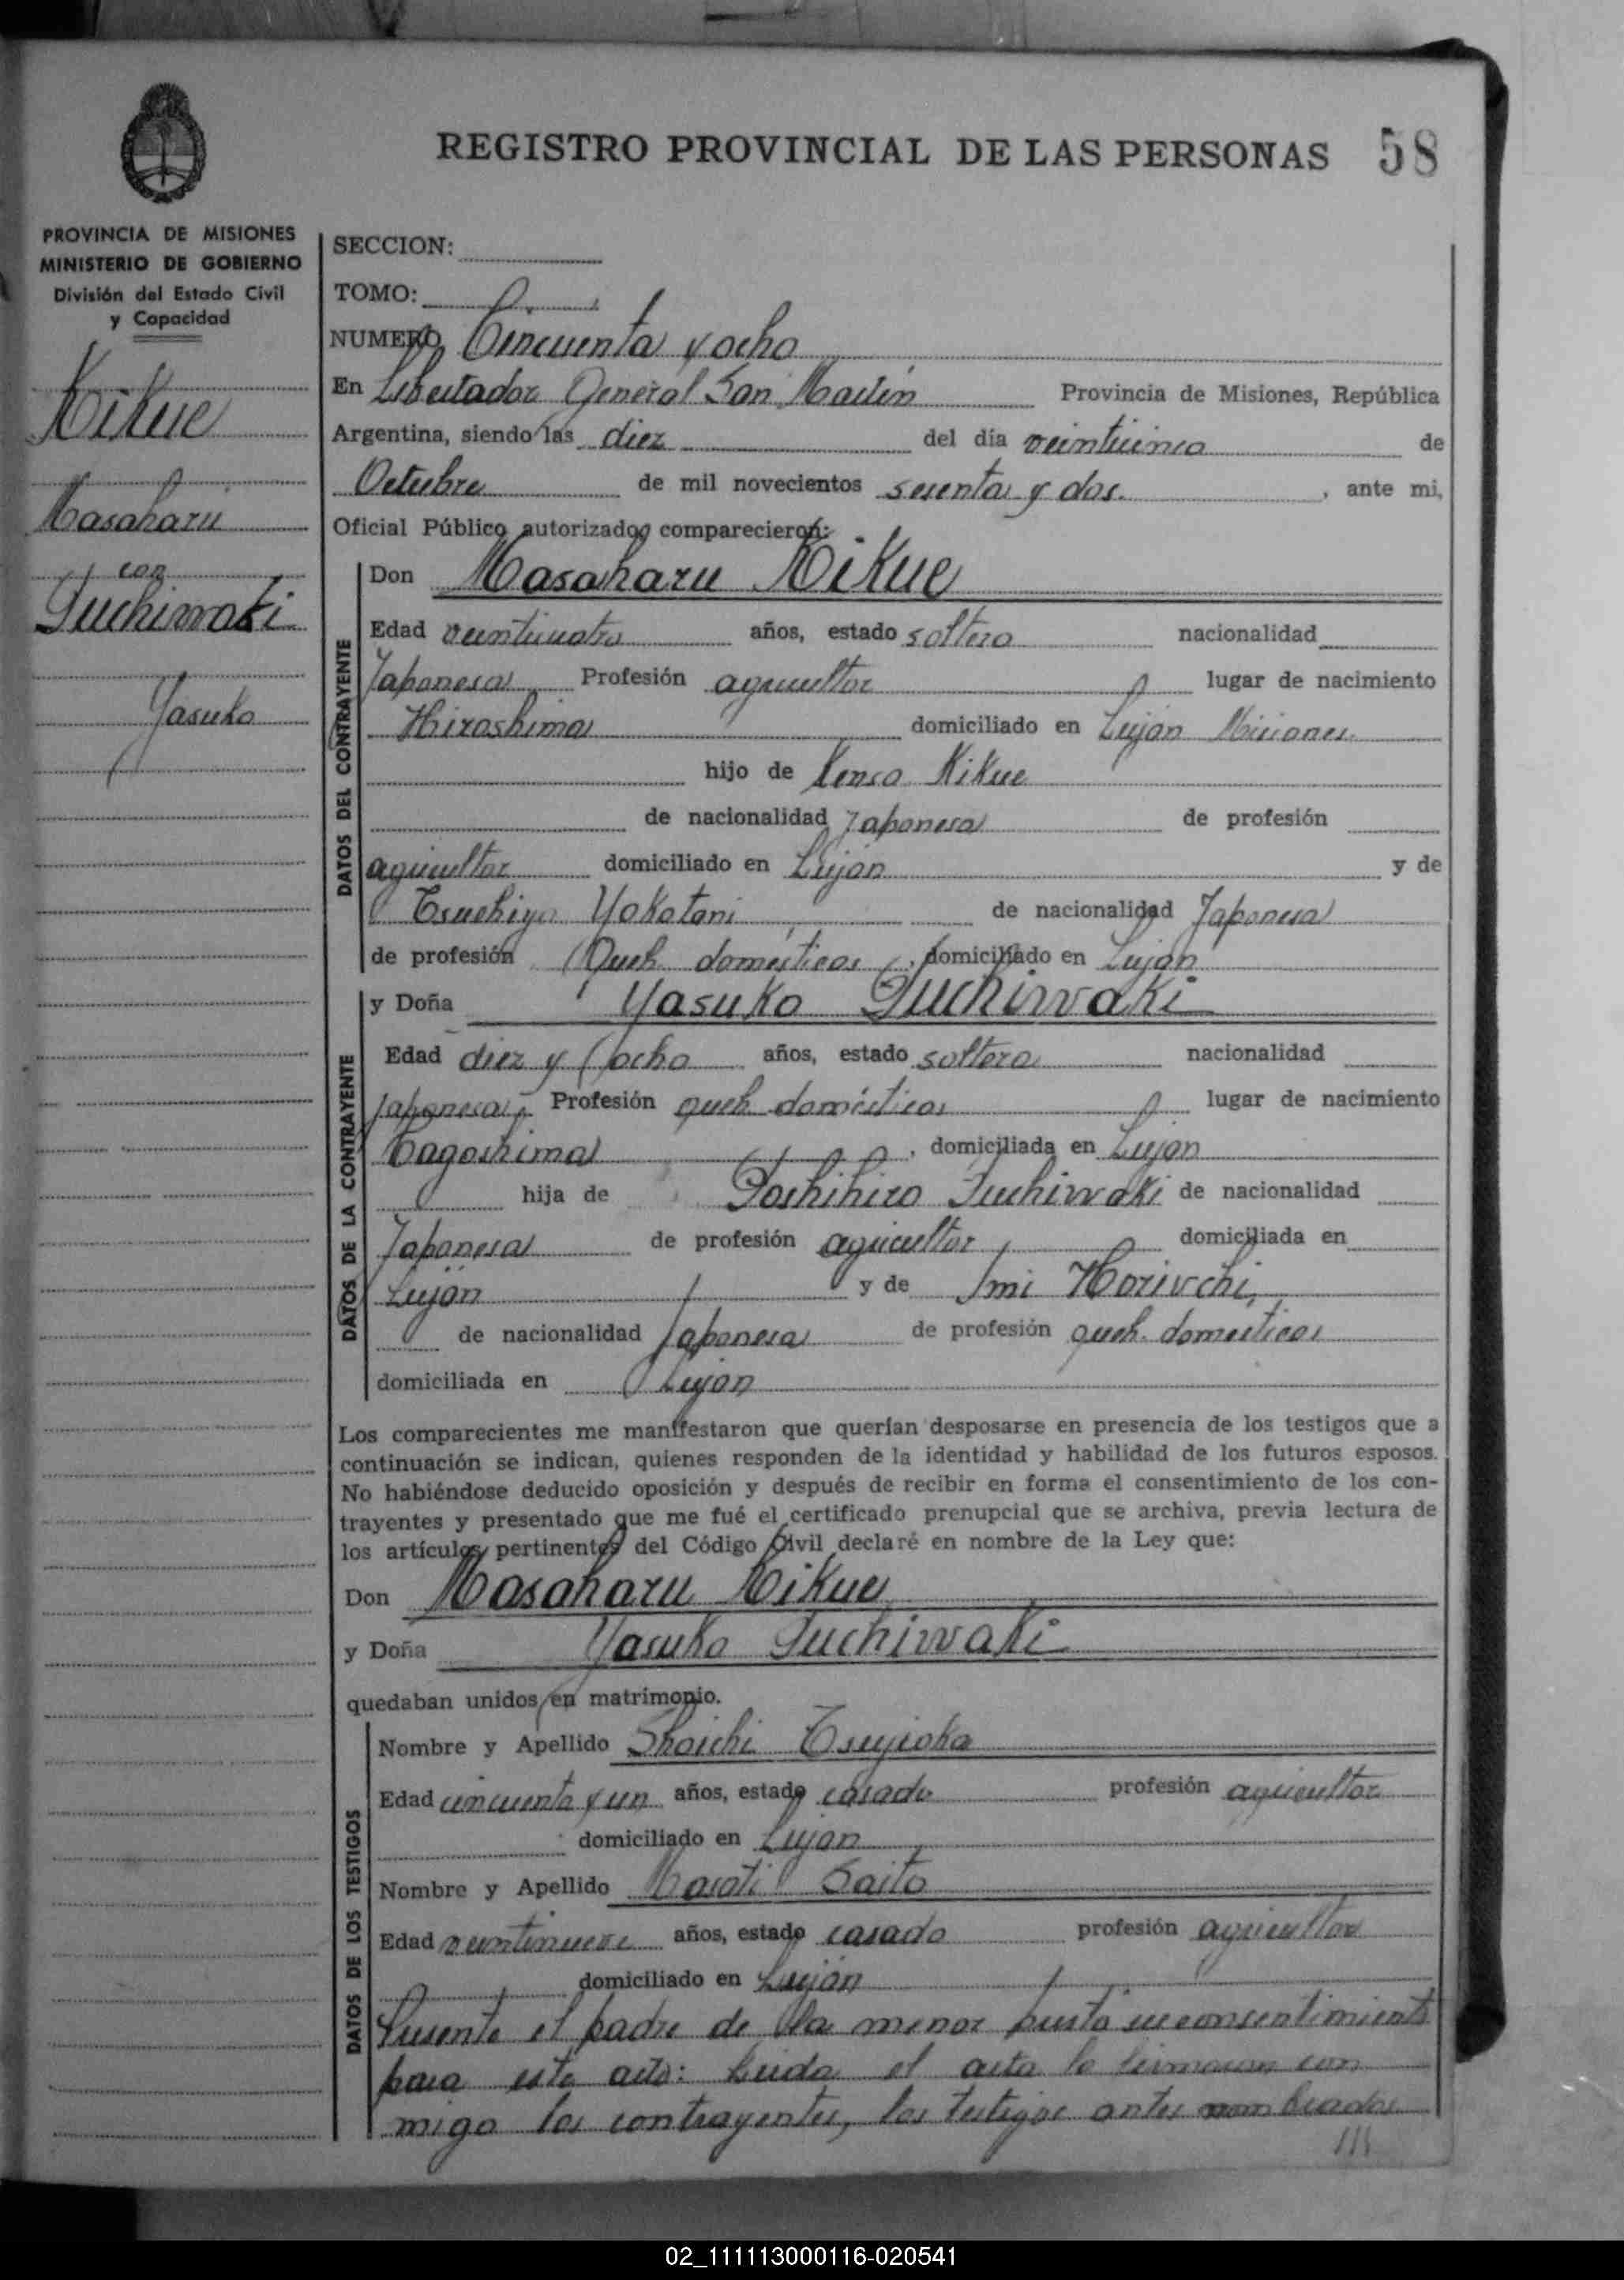 REGISTRO PROVINCIAL DE LAS PERSONAS 58
PROVINCIA DE MISIONES
MINISTERIO DE GOBIERNO
División del Estado Civil
y Capacidad
Kikue
Masaharu
con
Tuchiwaki
Yasuko
SECCION:
TOMO:
NUMERO Cincuenta y ocho
En Libertador General San Martín Provincia de Misiones, República
Argentina, siendo las diez del día veinticinco de
Octubre de mil novecientos sesenta y dos. , ante mi,
Oficial Público autorizado comparecieron:
DATOS DEL CONTRAYENTE
Don Masaharu Kikue
Edad veinticuatro años, estado soltero nacionalidad
Japonesa Profesión agricultor lugar de nacimiento
Hiroshima domiciliado en Luján Misiones.
hijo de Kenso Kikue
de nacionalidad Japonesa de profesión
agricultor domiciliado en Luján y de
Tsuchiyo Yokotani de nacionalidad Japonesa
de profesión Queh. domésticos , domiciliado en Luján
DATOS DE LA CONTRAYENTE
y Doña Yasuko Tuchiwaki
Edad diez y ocho años, estado soltera nacionalidad
japonesa Profesión queh. domésticos lugar de nacimiento
Cagoshima , domiciliada en Luján
hija de Toshihiro Tuchiwaki de nacionalidad
Japonesa de profesión agricultor domiciliada en
Luján y de Imi Horiuchi,
de nacionalidad Japonesa de profesión queh. domésticos
domiciliada en Luján
Los comparecientes me manifestaron que querían desposarse en presencia de los testigos que a
continuación se indican, quienes responden de la identidad y habilidad de los futuros esposos.
No habiéndose deducido oposición y después de recibir en forma el consentimiento de los con-
trayentes y presentado que me fué el certificado prenupcial que se archiva, previa lectura de
los artículos pertinentes del Código Civil declaré en nombre de la Ley que:
Don Masaharu Kikue
y Doña Yasuko Tuchiwaki
quedaban unidos en matrimonio.
DATOS DE LOS TESTIGOS
Nombre y Apellido Shoichi Tsujioka
Edad cincuenta y un años, estado casado profesión agricultor
domiciliado en Luján
Nombre y Apellido Saito
Edad veintinueve años, estado casado profesión agricultor
domiciliado en Luján
Presente el padre de la menor presta su consentimiento
para este acto: Leida el acta la firmaron con
migo los contrayentes, los testigos antes nombrados
///
02_111113000116-020541